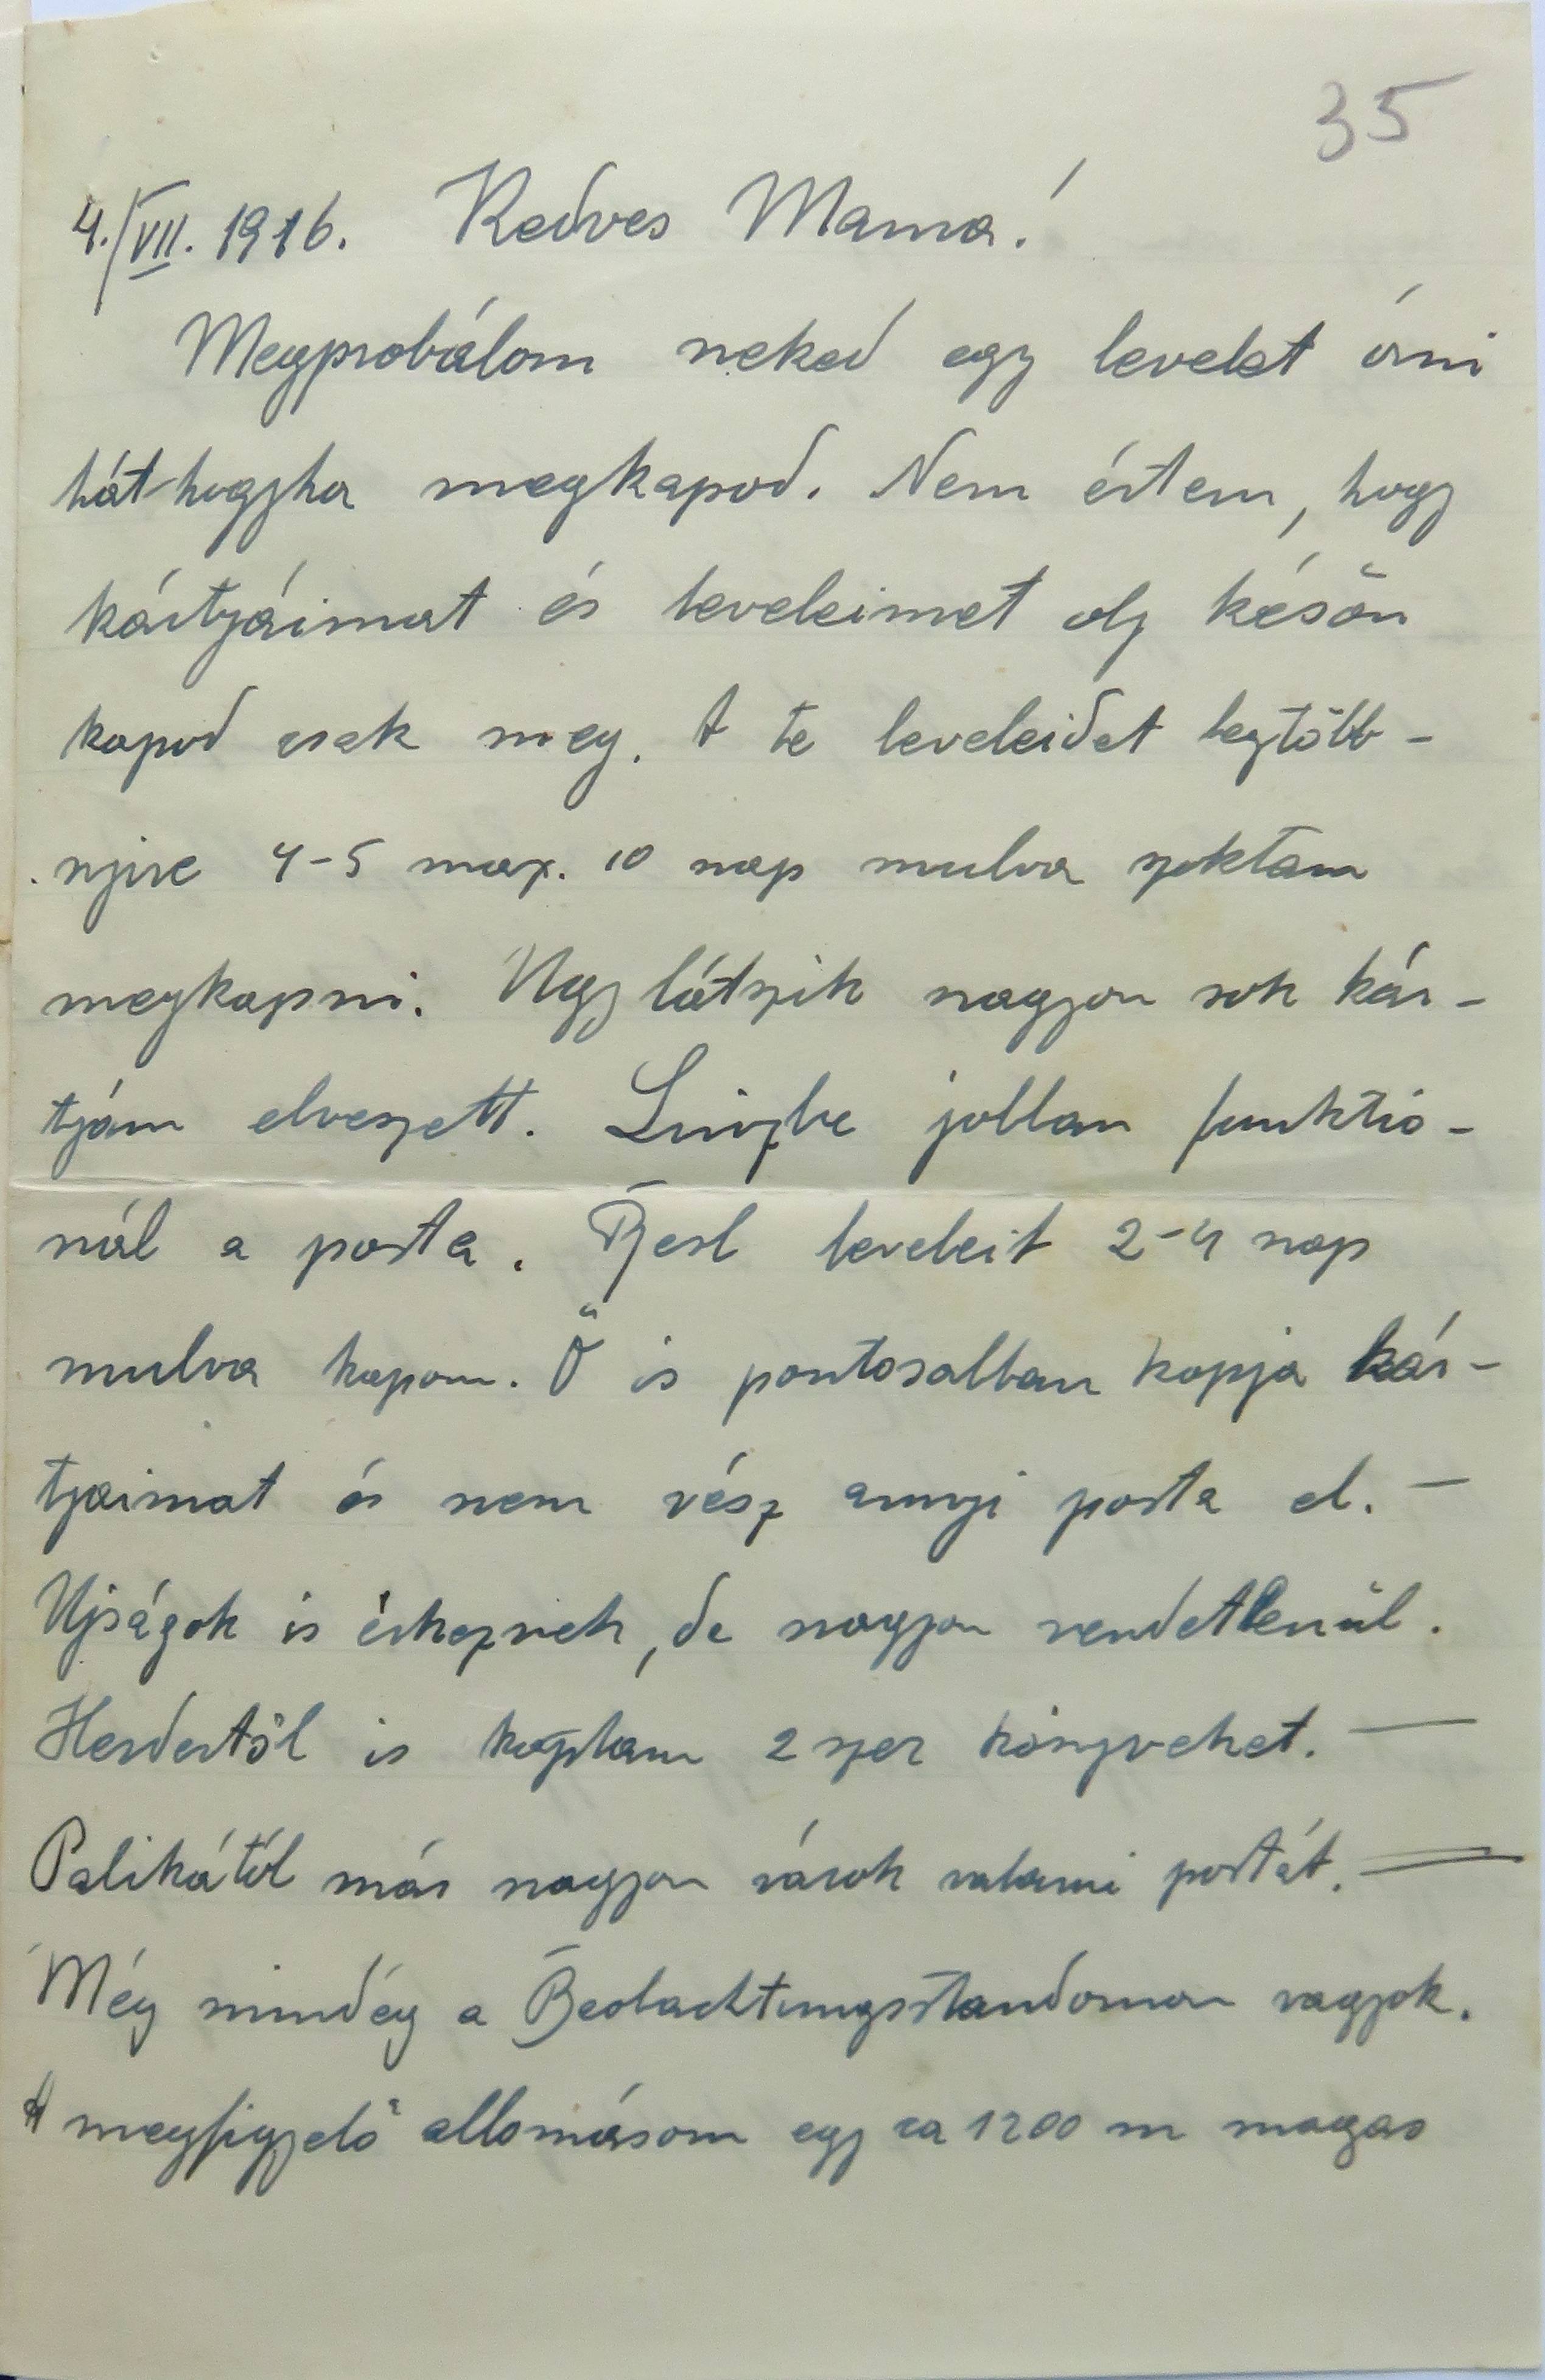 35
4./VII. 1916. Kedves Mama!
Megprobálom neked egy levelet irni
hát hogyha megkapod. Nem értem, hogy
kártyáimat és leveleimet oly késön
kapod csak meg. A te leveleidet legtöbb-
nyire 4-5 max. 10 nap mulva szoktam
megkapni. Ugy látszik nagyon sok kár-
tyám elveszett. Linzbe jobban funktio-
nál a posta. leveleit 2-4 nap
mulva kapom. Ő is pontosabban kapja kár-
tyaimat és nem vész annyi posta el. —
Ujságok is érkeznek, de nagyon rendetlenül.
Herdertöl is kaptam 2 szer könyveket. —
Palikától már nagyon várok valami postát. —
Még mindég a Beobachtungsstandomon vagyok.
A megfigyelő allomásom egy ca 1200 m magas